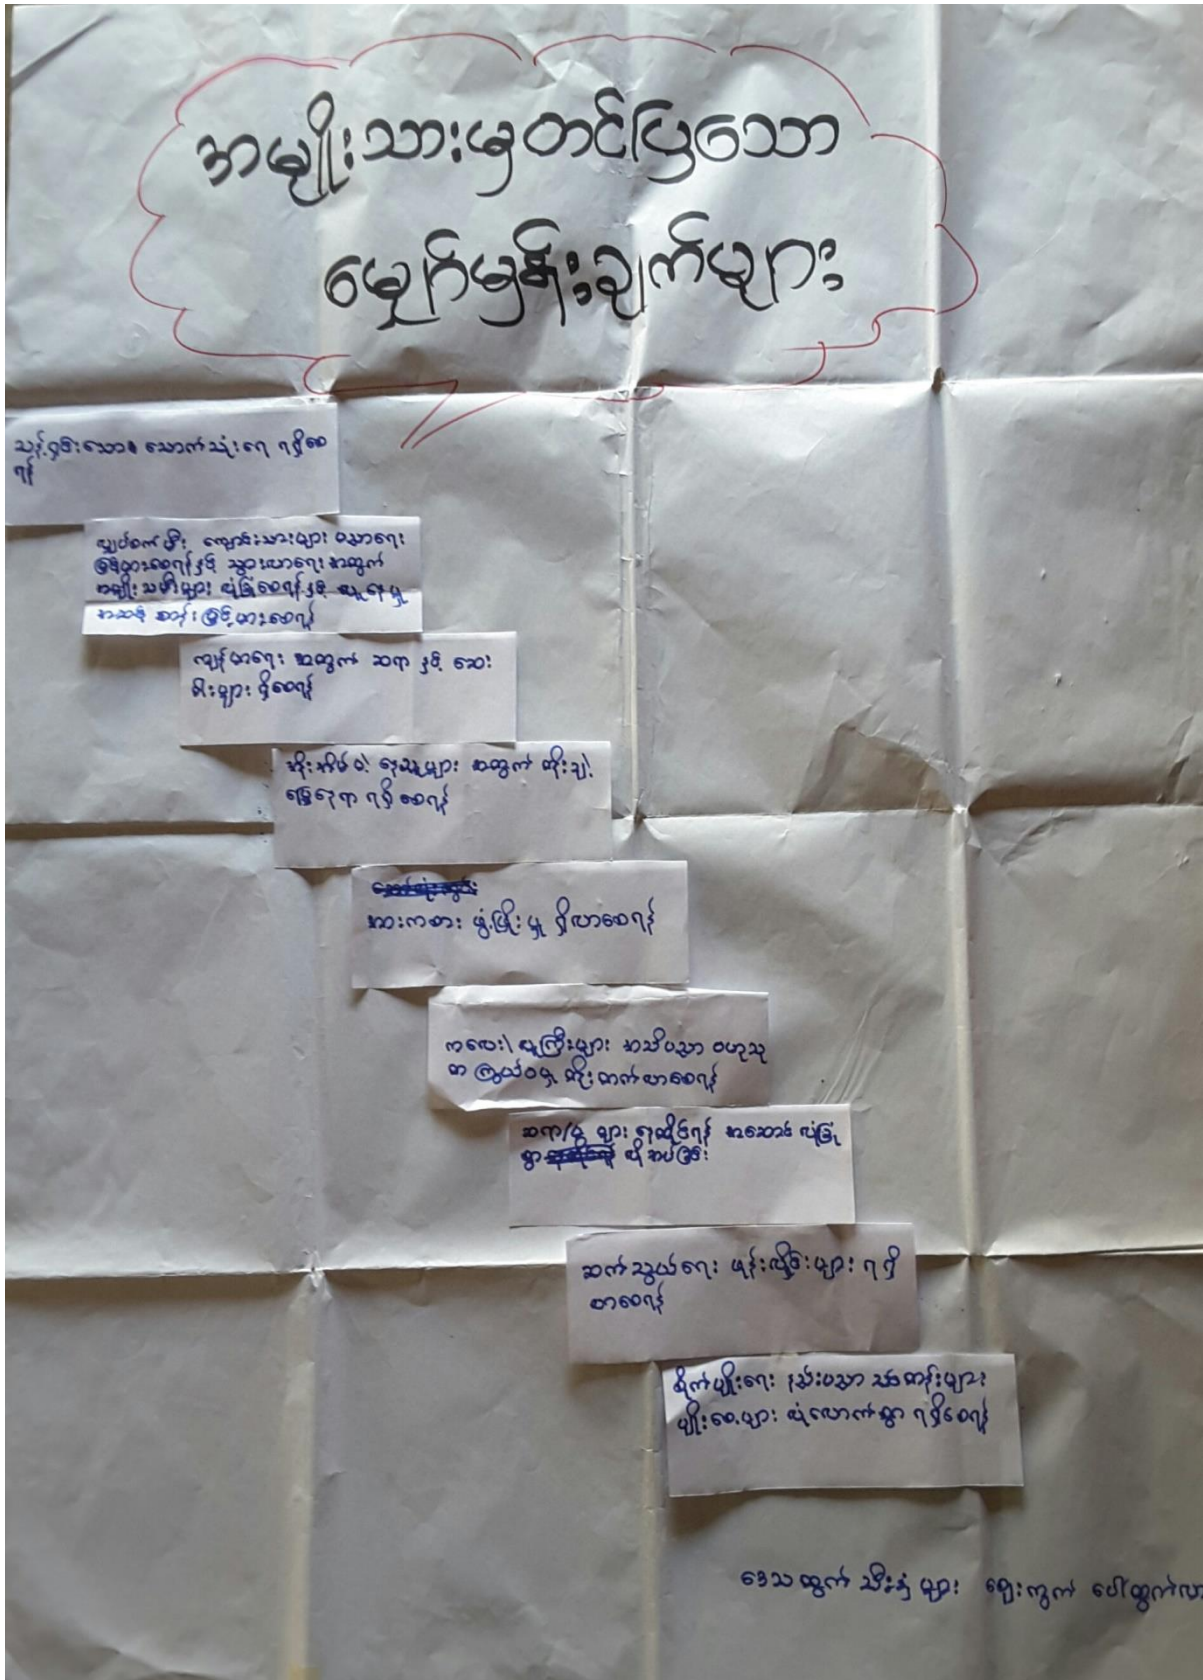 အမျိုးသားမှတင်ပြသော
မျှော်မှန်းချက်များ
သန့်ရှင်းသော သောက်သုံးရေ ရရှိစေ
ရန်
လျှပ်စစ်မီး ကျောင်းသားများ ပညာရေး
မြင့်မားစေရန်နှင့် သွားလာရေး အတွက်
အမျိုးသမီးများ လုံခြုံစေရန်နှင့် လူနေမှု
အဆင့် တန်း မြင့်မားစေရန်
ကျန်းမာရေး အတွက် ဆရာ နှင့် ဆေး
ဝါးများ ရှိစေရန်
အိုးအိမ်မဲ့ နေသူများ အတွက် တိုးချဲ့
မြေနေရာ ရရှိ စေရန်
အားကစား ဖွံ့ဖြိုး မှု ရှိလာစေရန်
ကလေး\ လူကြီးများ အသိပညာ ဗဟုသု
တ ကြွယ်ဝမှု တိုးတက်လာစေရန်
ဆရာ/မ များ နေထိုင်ရန် အဆောင် လုံခြုံ
စွာ လိုအပ်ခြင်း
ဆက်သွယ်ရေး ဖုန်းလိုင်းများ ရရှိ
လာစေရန်
စိုက်ပျိုးရေး နည်းပညာ သင်တန်းများ
မျိုးစေ့များ လုံလောက်စွာ ရရှိစေရန်
ဒေသထွက် သီးနှံ များ ဈေးကွက် ပေါ်ထွက်လာ